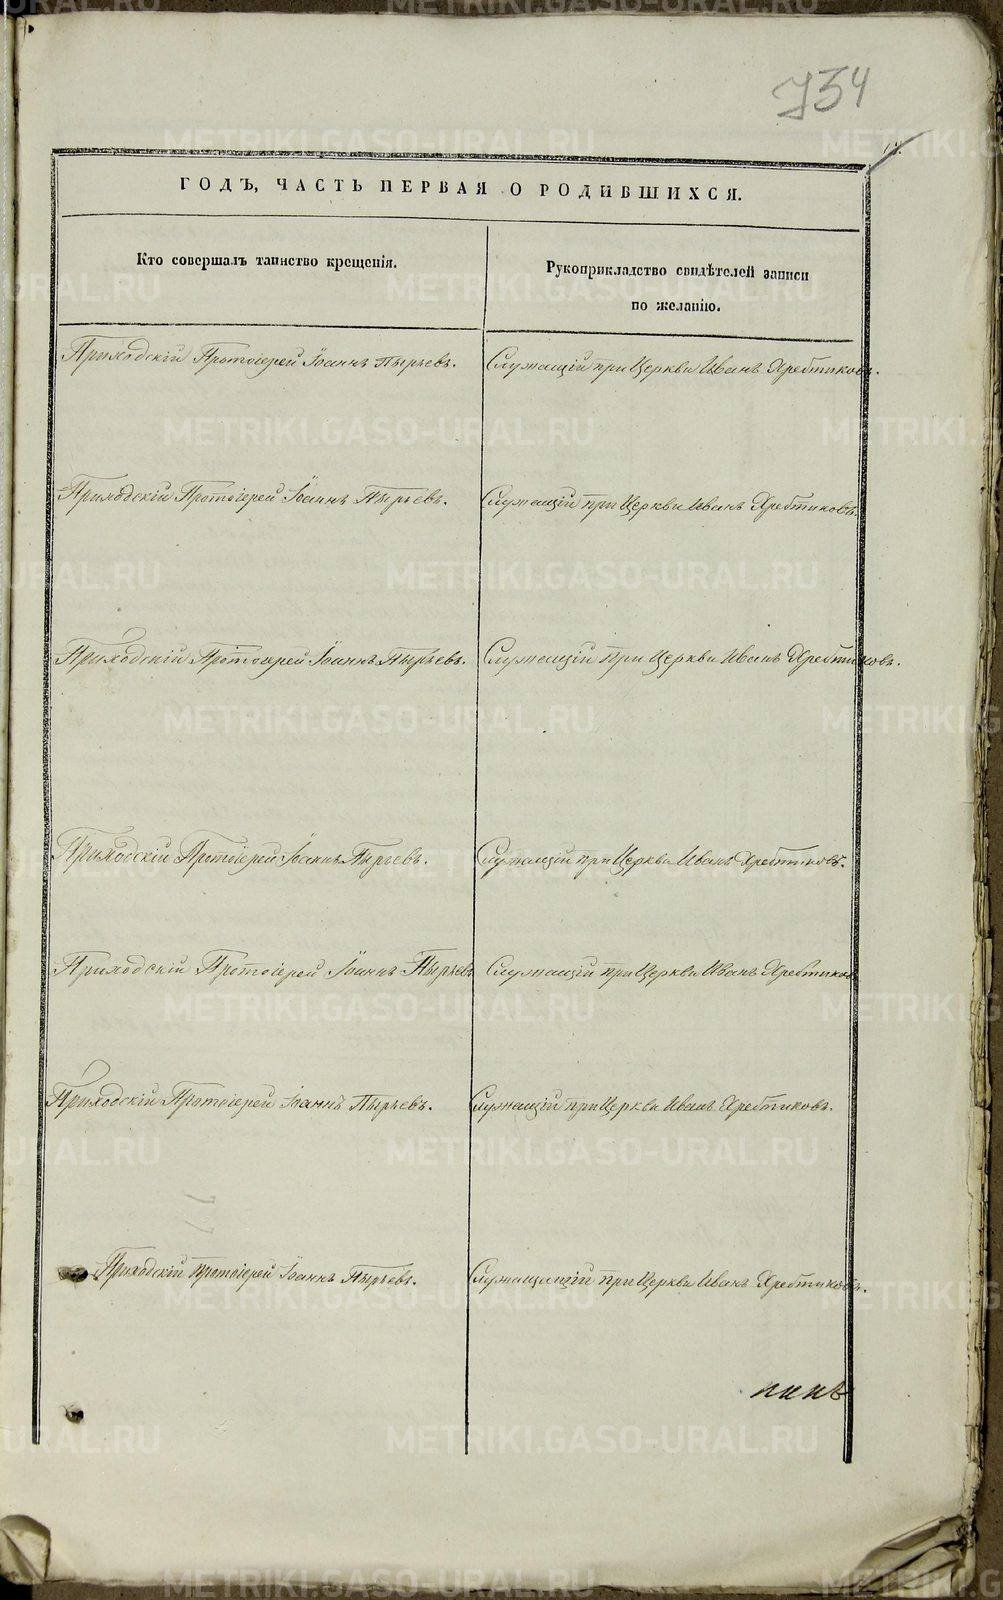 754
ГОДЪ, ЧАСТЬ ПЕРВАЯ О РОДИВШИХСЯ.
Кто совершалъ таинство крещенія.
Рукоприкладство свидѣтелей записи
по желанію.
Приходскій Протоіерей Іоаннъ Пырьевъ. Служащій при Церкви Иванъ Хребтиковъ.
Приходскій Протоіерей Іоаннъ Пырьевъ. Служащій при Церкви Иванъ Хребтиковъ.
Приходскій Протоіерей Іоаннъ Пырьевъ. Служащій при Церкви Иванъ Хребтиковъ.
Приходскій Протоіерей Іоаннъ Пырьевъ. Служащій при Церкви Иванъ Хребтиковъ.
Приходскій Протоіерей Іоаннъ Пырьевъ Служащій при Церкви Иванъ Хребтиковъ
Приходскій Протоіерей Іоаннъ Пырьевъ. Служащій при Церкви Иванъ Хребтиковъ.
Приходскій Протоіерей Іоаннъ Пырьевъ. Служащій при Церкви Иванъ Хребтиковъ.
METRIKI.GASO-URAL.RU